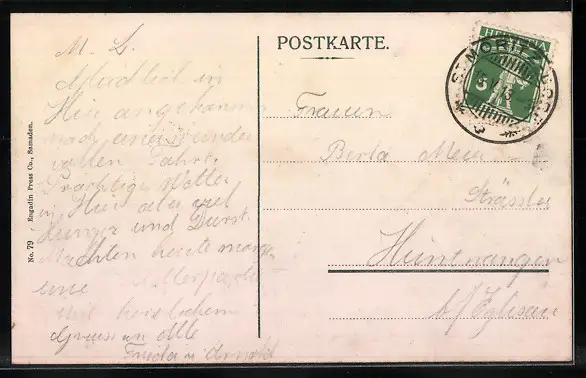 POSTKARTE.
HELVETIA
5
ST. MORITZ DORF
M. L.
in
Hier angekommen
nach einer wunder
vollen Fahrt.
Prächtiges Wetter
in Hier aber viel
Hunger und Durst.
Machten heute morgen
eine
mit herzlichen
Grüssen an alle
Frieda u Arnold
Frauen
Berta Meier
Strässler
Hüntwangen
b/Eglisau
No. 79 Engadin Press Co., Samaden.